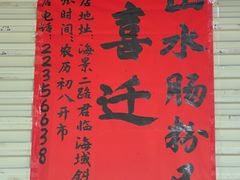 山水肠粉
喜迁
店地址:海景二路君临海域斜
张时间:农历初八开市
店电话:22356638